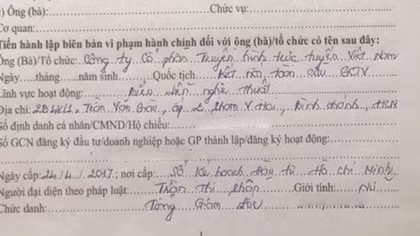 ) Ông (bà): Chức vụ:
Cơ quan:
Tiến hành lập biên bản vi phạm hành chính đối với ông (bà)/tổ chức có tên sau đây:
Ông (Bà)/Tổ chức: Công ty Cổ phần Truyền hình trực tuyến Việt Nam
Ngày....tháng....năm sinh Quốc tịch kết nối toàn cầu GCTV
Lĩnh vực hoạt động: Biểu diễn nghệ thuật
Địa chỉ: Trần Văn Giàu, ấp 2, Bình Chánh, HCM
Số định danh cá nhân/CMND/Hộ chiếu:
Số GCN đăng ký đầu tư/doanh nghiệp hoặc GP thành lập/đăng ký hoạt động:
Ngày cấp: 24/4/2017; nơi cấp: Sở Kế hoạch Đầu tư Hồ Chí Minh
Người đại diện theo pháp luật: Trần Thị Giới tính: Nữ
Chức danh: Tổng Giám đốc